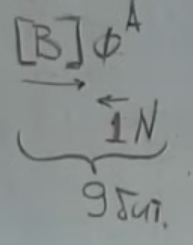 [B] ф^A
1N
9 бит.